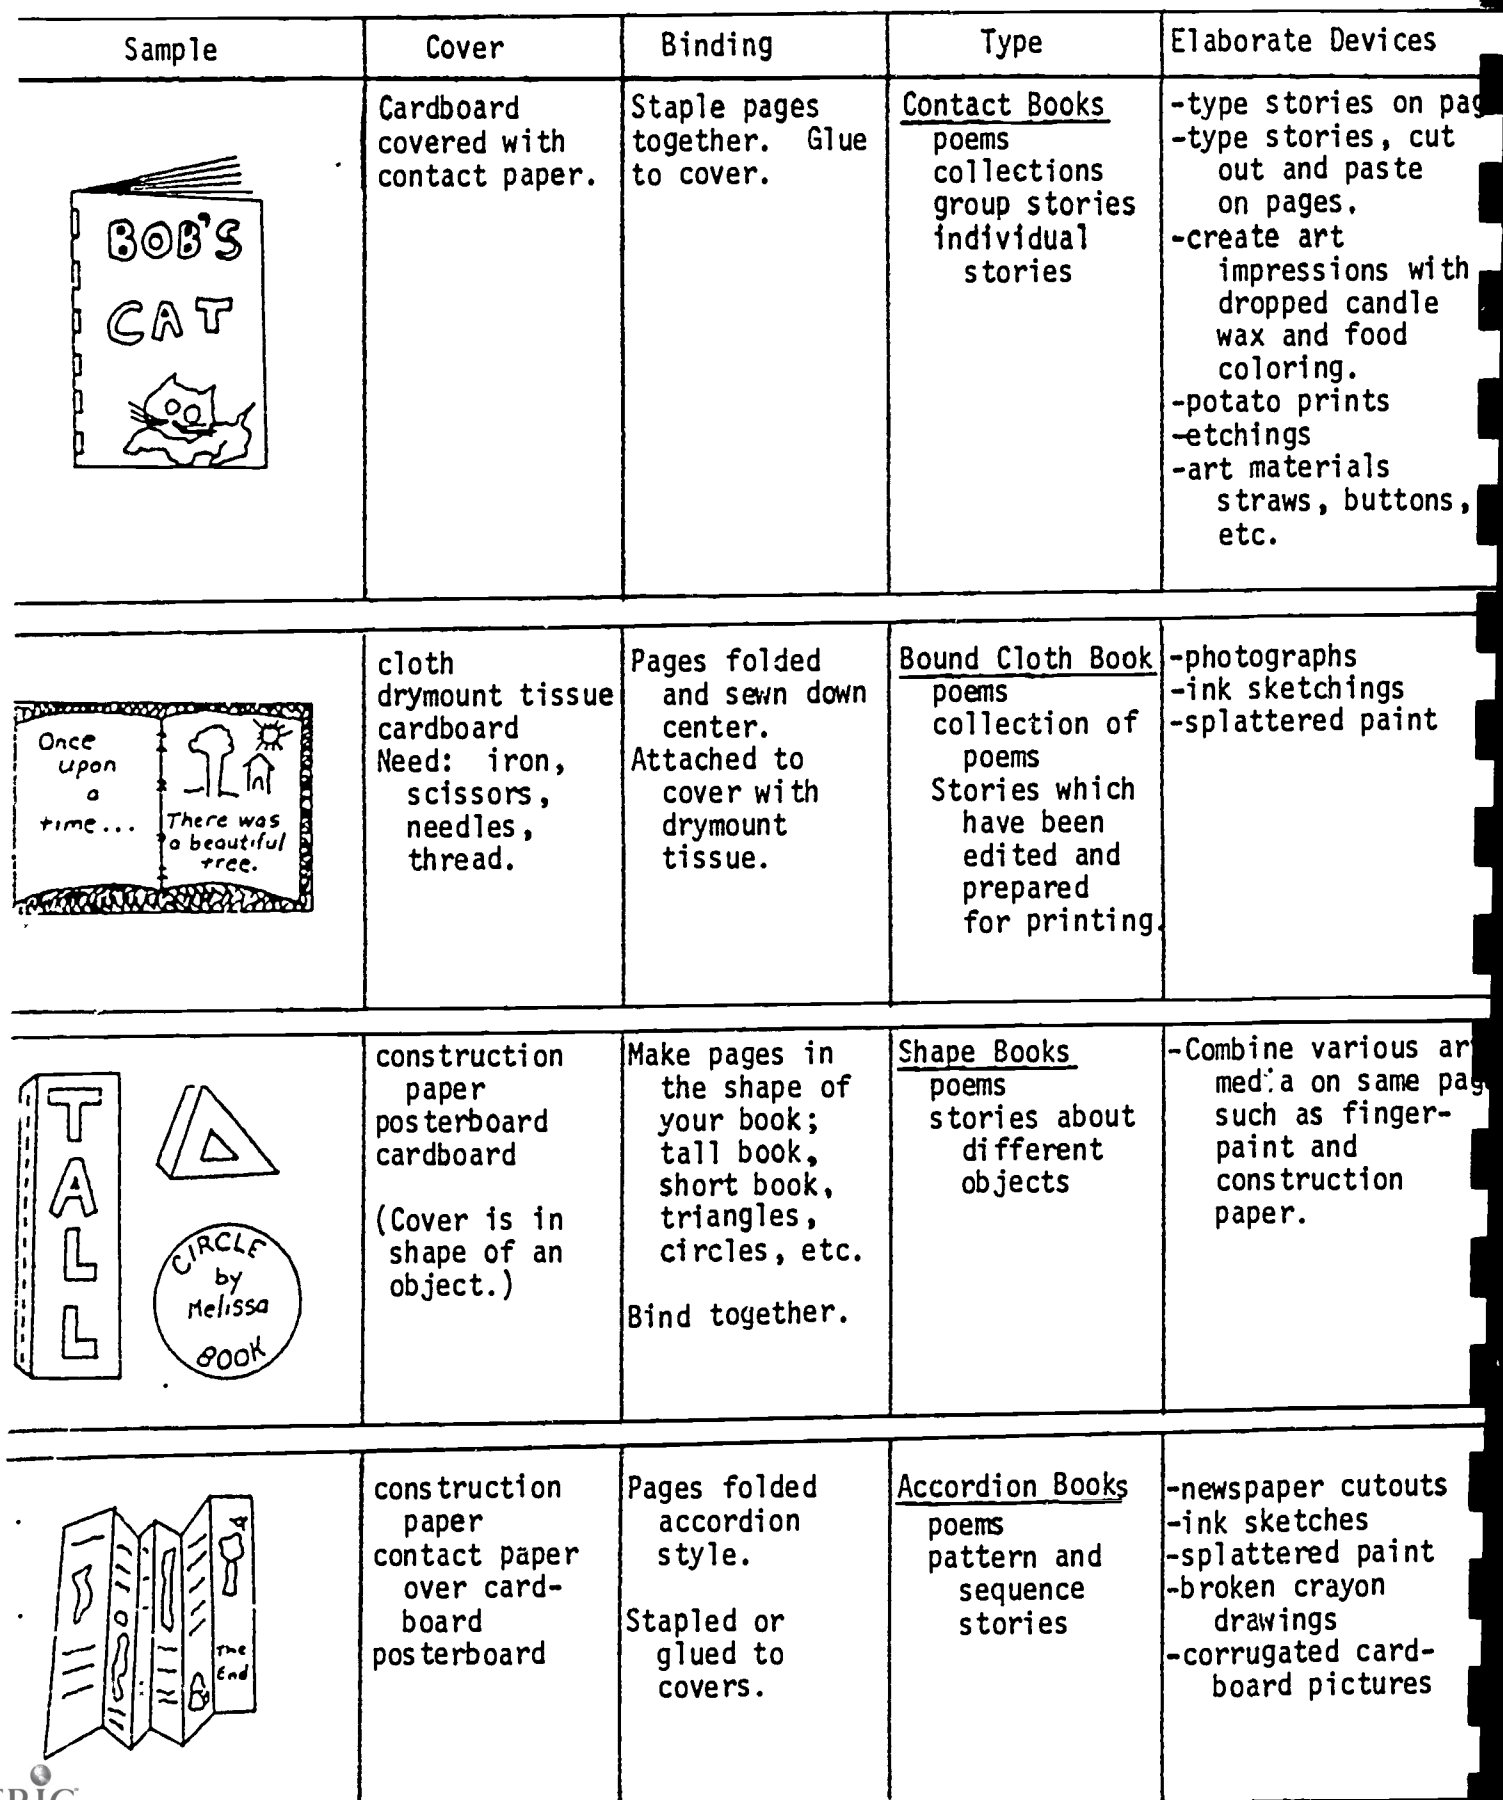 Sample Cover Binding Type Elaborate Devices
BOB'S
CAT
Cardboard
covered with
contact paper.
Staple pages
together. Glue
to cover.
Contact Books
poems
collections
group stories
individual
stories
-type stories on
-type stories, cut
out and paste
on pages.
-create art
impressions with
dropped candle
wax and food
coloring.
-potato prints
-etchings
-art materials
straws, buttons,
etc.
Once
upon
a
time...
There was
a beautiful
tree.
cloth
drymount tissue
cardboard
Need: iron,
scissors,
needles,
thread.
Pages folded
and sewn down
center.
Attached to
cover with
drymount
tissue.
Bound Cloth Book
poems
collection of
poems
Stories which
have been
edited and
prepared
for printing.
-photographs
-ink sketchings
-splattered paint
TALL
CIRCLE
by
Melissa
BOOK
construction
paper
posterboard
cardboard
(Cover is in
shape of an
object.)
Make pages in
the shape of
your book;
tall book,
short book,
triangles,
circles, etc.
Bind together.
Shape Books
poems
stories about
different
objects
-Combine various
media on same
such as finger-
paint and
construction
paper.
The
End
construction
paper
contact paper
over card-
board
posterboard
Pages folded
accordion
style.
Stapled or
glued to
covers.
Accordion Books
poems
pattern and
sequence
stories
-newspaper cutouts
-ink sketches
-splattered paint
-broken crayon
drawings
-corrugated card-
board pictures